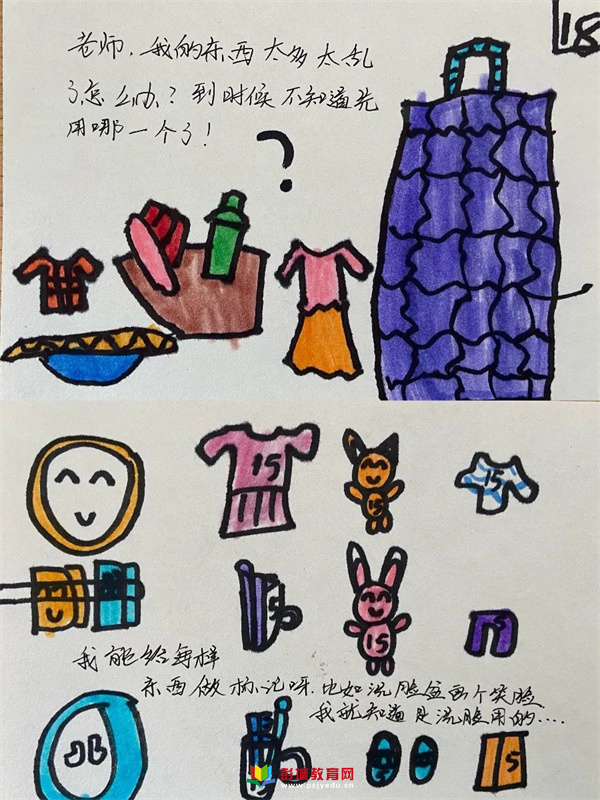 18
老师，我的东西太多太乱
了怎么办？到时候不知道先
用哪一个了！
?
15
15
15
15
5
15
5
我能给每样
东西做标记呀，比如洗脸盆画个笑脸
我就知道是洗脸用的....
15
5
彭城教育网
www.pcjyedu.cn